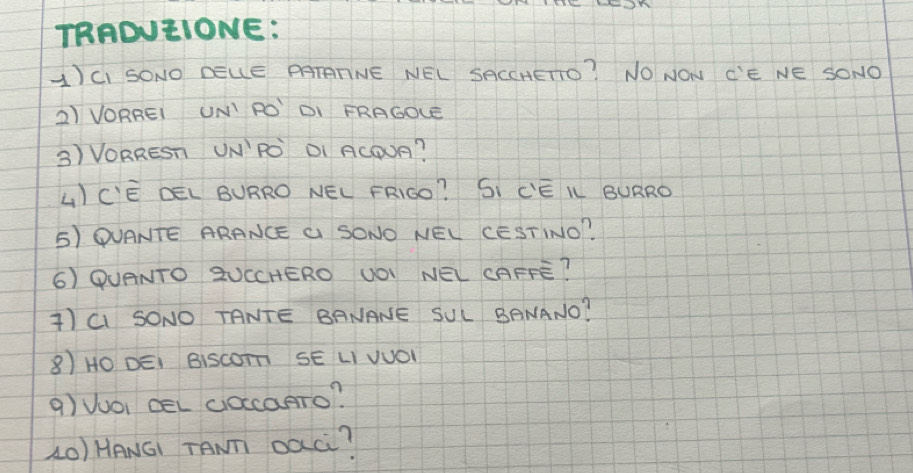 ON THE DESK
TRADUZIONE:
1) CI SONO DELLE PATATINE NEL SACCHETTO? NO NON C'E NE SONO
2) VORREI UN' PO' DI FRAGOLE
3) VORRESTI UN' PO' DI ACQUA?
4) C'È DEL BURRO NEL FRIGO? SI C'È IL BURRO
5) QUANTE ARANCE CI SONO NEL CESTINO?
6) QUANTO ZUCCHERO VOI NEL CAFFÈ?
7) CI SONO TANTE BANANE SUL BANANO?
8) HO DEI BISCOTTI SE LI VUOI
9) VUOI DEL CIOCCOLATO?
10) MANGI TANTI DOLCI?